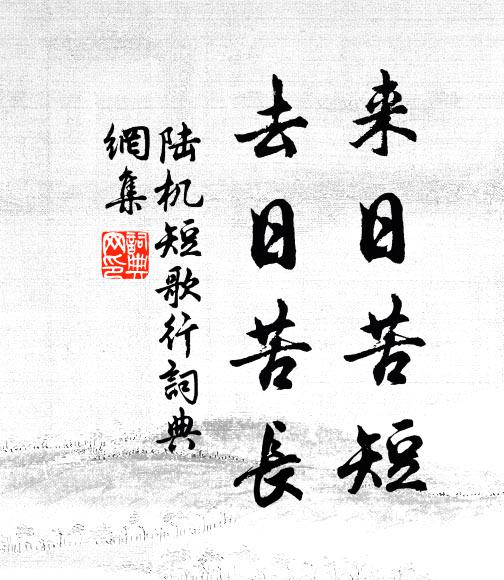 来日苦短
去日苦長
陆机短歌行詞典
網集
詞典網印